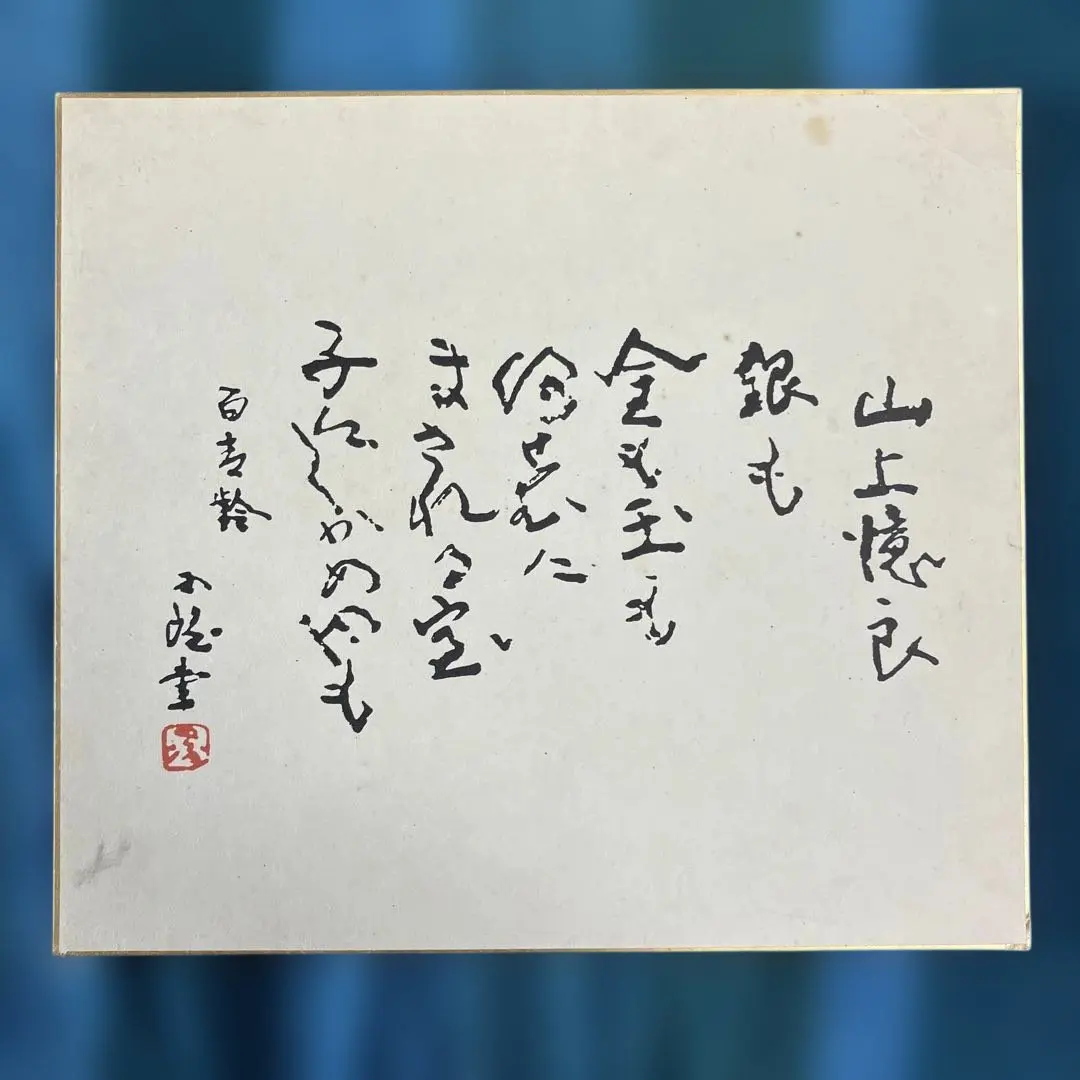 山上憶良
銀も
金も玉も
何せむに
まされる宝
子にしかめやも
百青齢